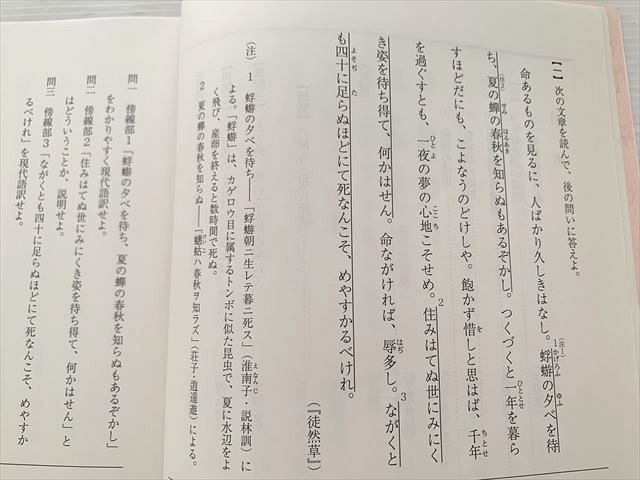 【一】 次の文章を読んで、後の問いに答えよ。
命あるものを見るに、人ばかり久しきはなし。蜉蝣の夕べを待
ち、夏の蟬の春秋を知らぬもあるぞかし。つくづくと一年を暮ら
すほどだにも、こよなうのどけしや。飽かず惜しと思はば、千年
を過ぐすとも、一夜の夢の心地こそせめ。住みはてぬ世にみにく
き姿を待ち得て、何かはせん。命ながければ、辱多し。ながくと
も四十に足らぬほどにて死なんこそ、めやすかるべけれ。
(『徒然草』)
(注) 1 蜉蝣の夕べを待ち――「蜉蝣朝ニ生レテ暮ニ死ス」(淮南子・説林訓)に
よる。「蜉蝣」は、カゲロウ目に属するトンボに似た昆虫で、夏に水辺をよ
く飛び、産卵を終えると数時間で死ぬ。
2 夏の蟬の春秋を知らぬ――「蟪蛄ハ春秋ヲ知ラズ」(荘子・逍遥遊)による。
問一 傍線部1「蜉蝣の夕べを待ち、夏の蟬の春秋を知らぬもあるぞかし」
をわかりやすく現代語訳せよ。
問二 傍線部2「住みはてぬ世にみにくき姿を待ち得て、何かはせん」と
はどういうことか、説明せよ。
問三 傍線部3「ながくとも四十に足らぬほどにて死なんこそ、めやすか
るべけれ」を現代語訳せよ。